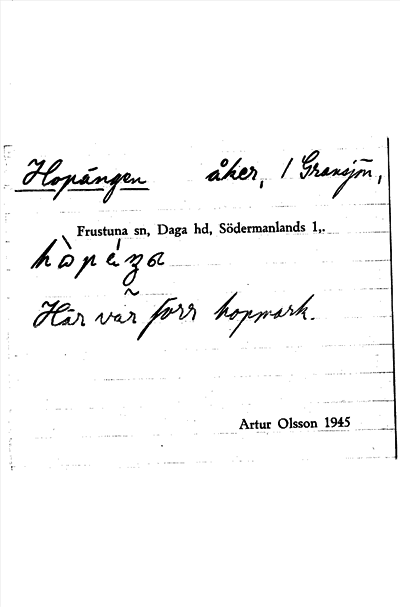 Hopängen åker, / Gransjön,
Frustuna sn, Daga hd, Södermanlands l,.
Här var förr hopmark.
Artur Olsson 1945